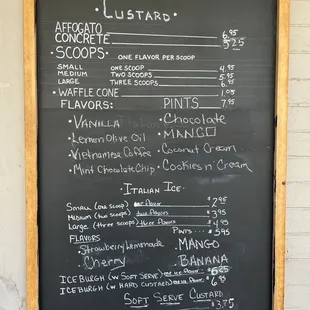 · CUSTARD ·
AFFOGATO 6.95
CONCRETE 5.25
· SCOOPS · ONE FLAVOR PER SCOOP
SMALL ONE SCOOP 4.95
MEDIUM TWO SCOOPS 5.95
LARGE THREE SCOOPS 6.95
· WAFFLE CONE 1.05
FLAVORS: PINTS 7.95
· VANILLA · Chocolate
· Lemon Olive Oil · MANGO
· Vietnamese Coffee · Coconut Cream
· Mint Chocolate Chip · Cookies n' Cream
· ITALIAN ICE ·
SMALL (ONE SCOOP) one flavor $2.95
MEDIUM (TWO SCOOPS) two flavors $3.95
LARGE (THREE SCOOPS) three flavors $4.95
FLAVORS PINTS $5.95
· Strawberry Lemonade · MANGO
· Cherry · BANANA
ICEBURGH (W SOFT SERVE) one ice flavor $6.25
ICEBURGH (W HARD CUSTARD) one ice flavor $6.95
SOFT SERVE CUSTARD
$3.75